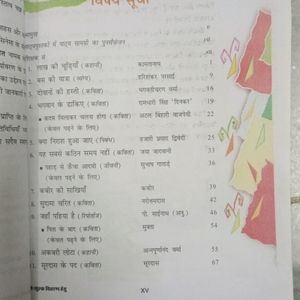 विषय सूची
पाठ्यपुस्तकों में पाठ्य सामग्री का पुनर्संयोजन
लाख की चूड़ियाँ (कहानी) कामतानाथ 1
बस की यात्रा (व्यंग्य) हरिशंकर परसाई 9
दीवानों की हस्ती (कविता) भगवतीचरण वर्मा 16
भगवान के डाकिए (कविता) रामधारी सिंह 'दिनकर' 19
• कदम मिलाकर चलना होगा (कविता) अटल बिहारी वाजपेयी 22
(केवल पढ़ने के लिए)
क्या निराश हुआ जाए (निबंध) हजारी प्रसाद द्विवेदी 25
6. यह सबसे कठिन समय नहीं (कविता) जया जादवानी 33
• पहाड़ से ऊँचा आदमी (जीवनी) सुभाष गाताडे 36
(केवल पढ़ने के लिए)
7. कबीर की साखियाँ कबीर 39
8. सुदामा चरित (कविता) नरोत्तमदास 42
9. जहाँ पहिया है (रिपोर्ताज) पी. साईनाथ (अनु.) 46
• पिता के बाद (कविता) मुक्ता 54
(केवल पढ़ने के लिए)
10. अकबरी लोटा (कहानी) अन्नपूर्णानंद वर्मा 55
11. सूरदास के पद (कविता) सूरदास 67
XV